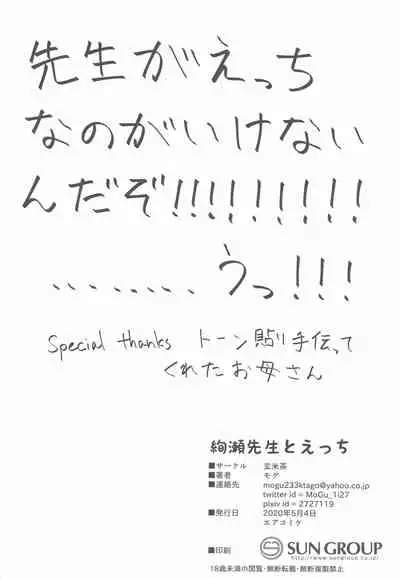 先生がえっち
なのがいけない
んだぞ!!!!!!!!!
......... うっ!!!
Special thanks トーン貼り手伝って
くれたお母さん
絢瀬先生とえっち
■サークル 玄米茶
■著者 モグ
■連絡先 mogu233ktago@yahoo.co.jp
twitter id = MoGu_1i27
pixiv id = 2727119
■発行日 2020年5月4日
エアコミケ
■印刷 SUN GROUP
http://www.sungroup.co.jp/
18歳未満の閲覧・無断転載・無断複製禁止